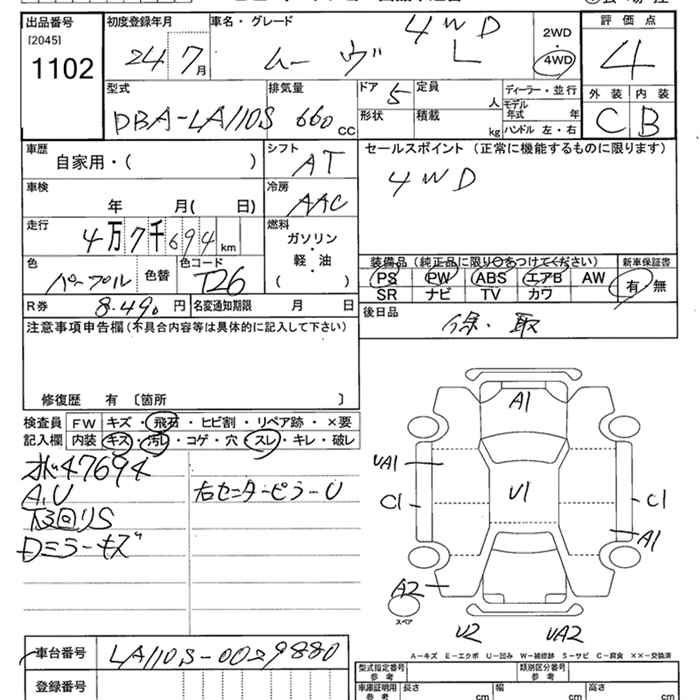 出品番号
[2045]
1102
初度登録年月
24 7月
車名・グレード
4WD
ムーヴ L
2WD
4WD
評価点
4
外装 内装
C B
型式
DBA-LA110S
排気量
660 cc
ドア 5
形状
定員 人
積載 kg
ディーラー・並行
モデル年式 年
ハンドル 左・右
車歴
自家用・( )
シフト
AT
セールスポイント (正常に機能するものに限ります)
4WD
車検
年 月( 日)
冷房
AAC
走行
4万7千694 km
燃料
ガソリン
・
軽・油
( )
色
パープル
色替
色コード
T26
装備品 (純正品に限り○をつけてください)
PS PW ABS エアB AW
SR ナビ TV カワ
新車保証書
有・無
R券 8.490 円
名変通知期限 月 日
後日品
保・取
注意事項申告欄(不具合内容等は具体的に記入して下さい)
修復歴 有 〔箇所 〕
検査員
記入欄
FW キズ・飛石・ヒビ割・リペア跡・×要
内装 キズ・汚レ・コゲ・穴・スレ・キレ・破レ
47694
A.U
下回りS
Dミラーキズ
右センターピラーU
A1
UA1
C1
U1
C1
A1
A2
スペア
U2
UA2
A－キズ E－エクボ U－凹み W－補修跡 S－サビ C－腐食 ××－交換済
車台番号 LA110S-0029880
登録番号
型式指定番号
参考
類別区分番号
参考
車庫証明用
参考
長さ cm
幅 cm
高さ cm